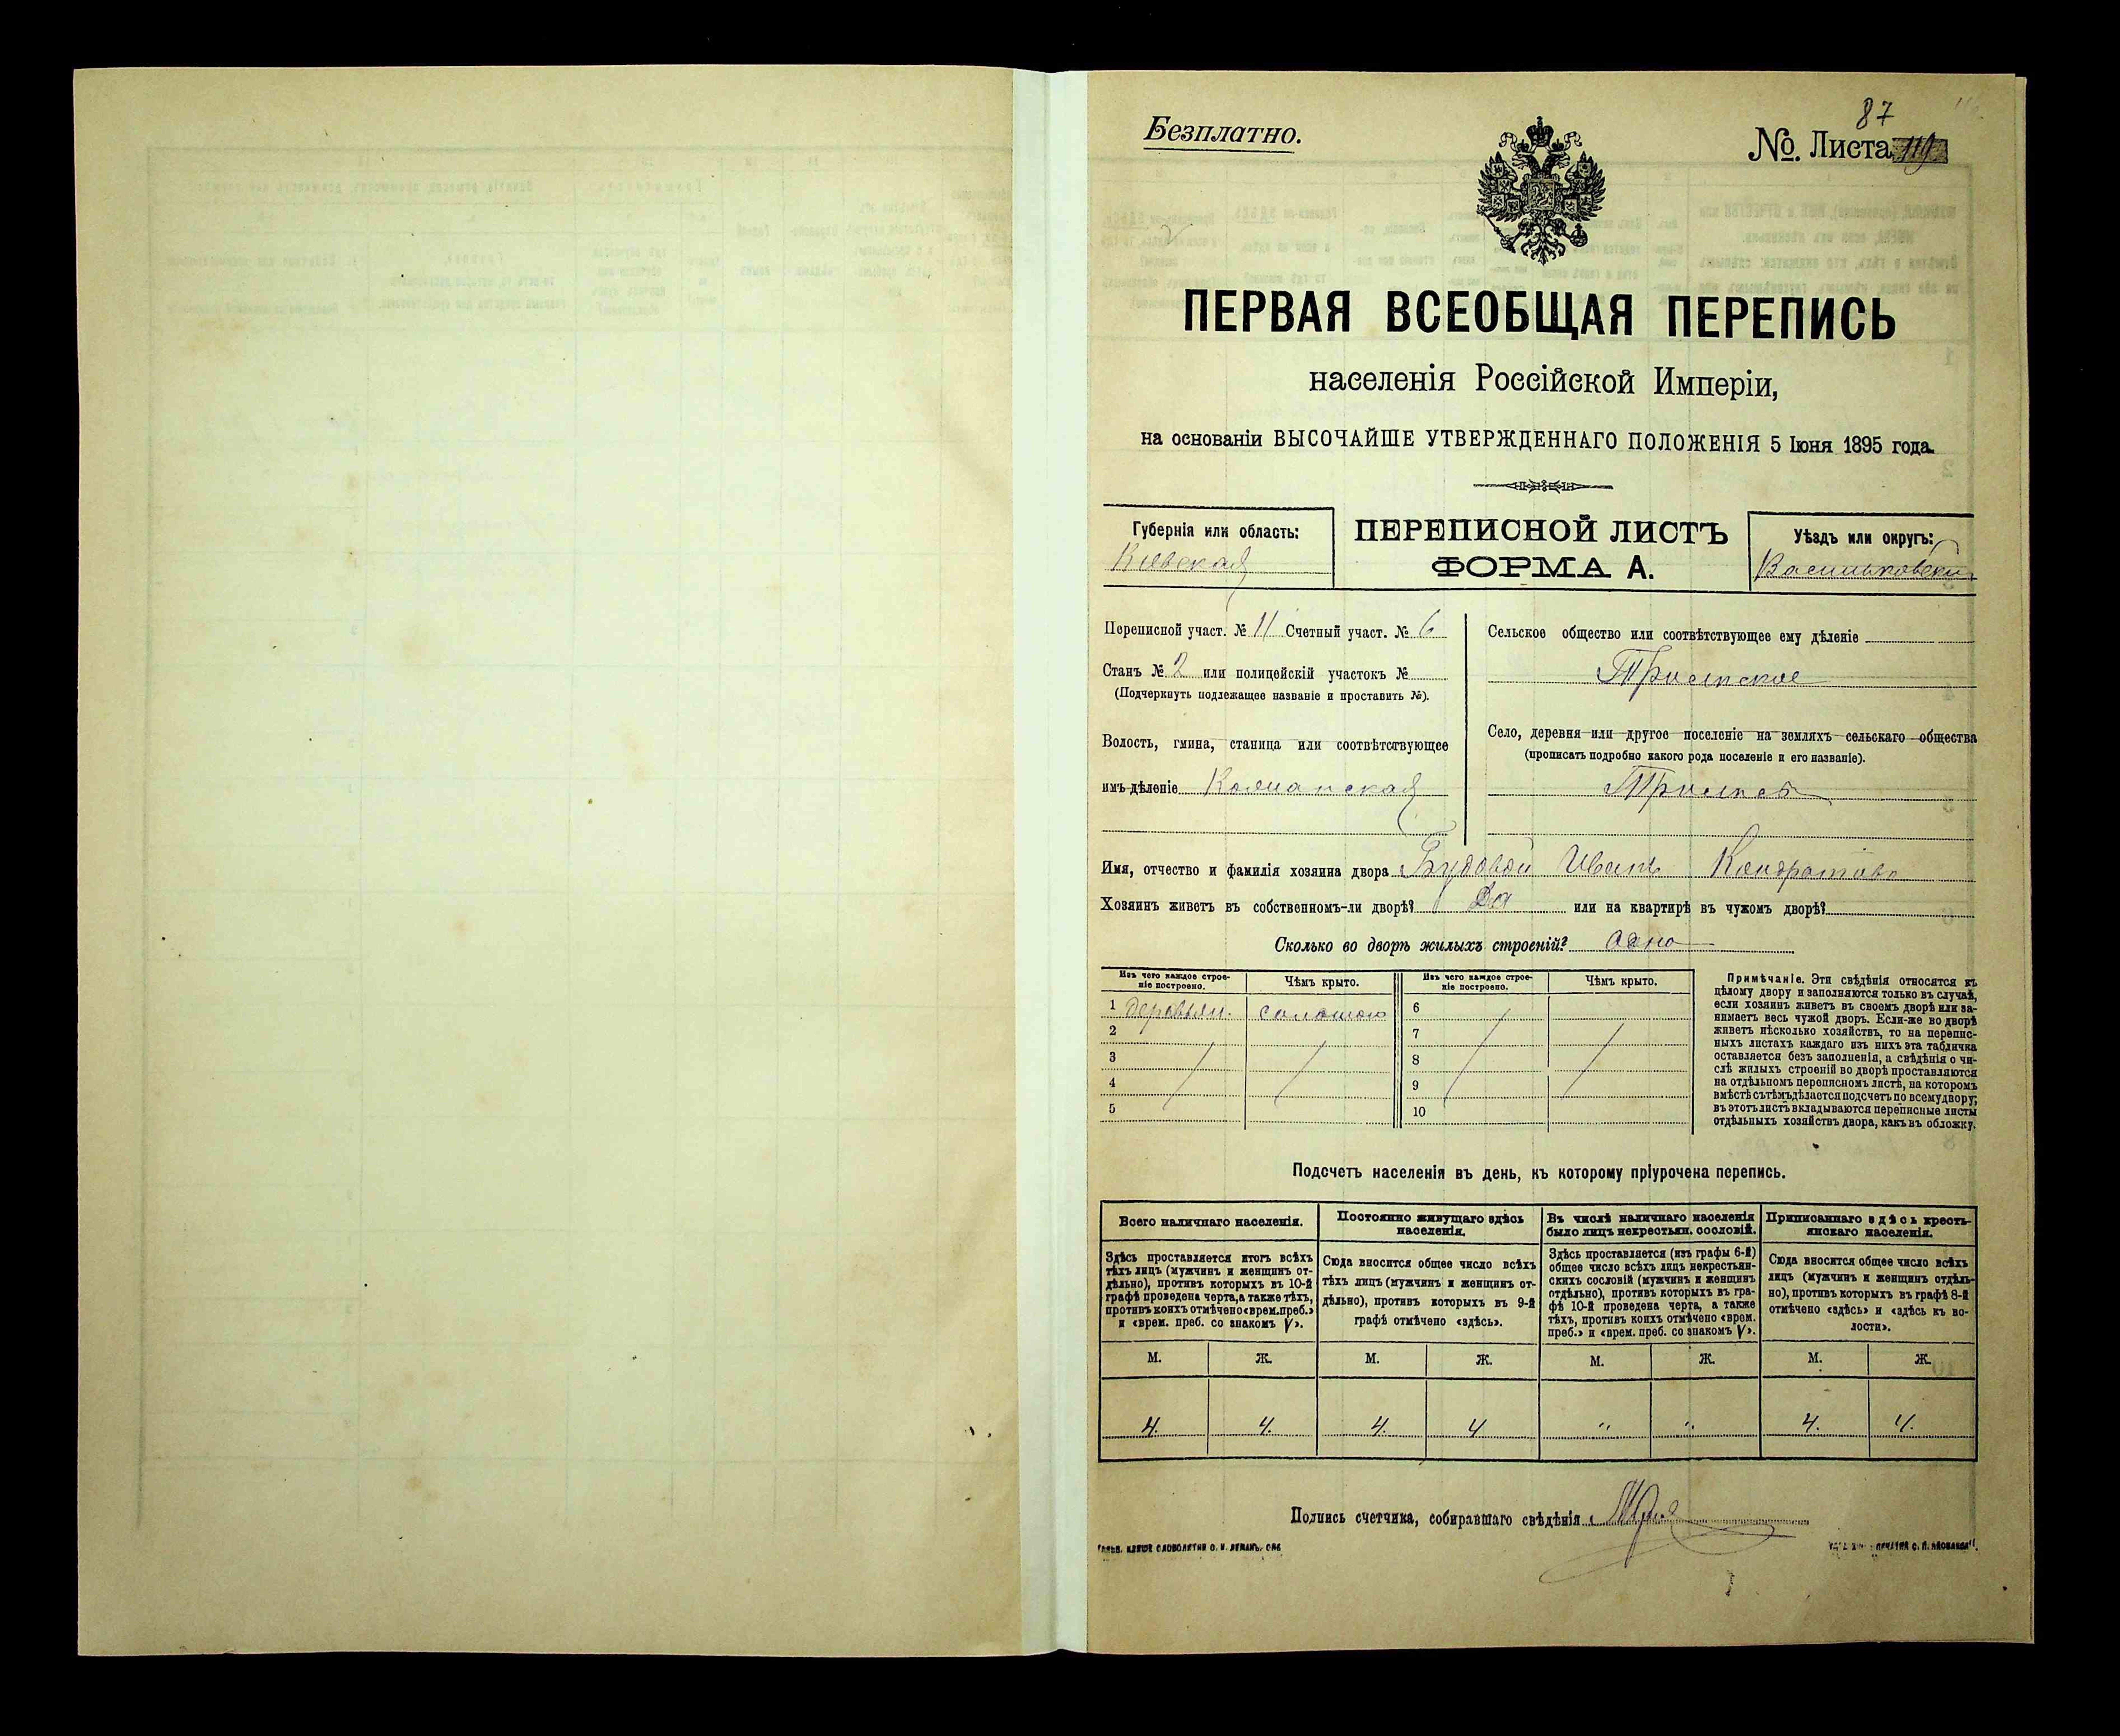 87
Безплатно.
№. Листа
ПЕРВАЯ ВСЕОБЩАЯ ПЕРЕПИСЬ
населенія Россійской Имперіи,
на основаніи ВЫСОЧАЙШЕ УТВЕРЖДЕННАГО ПОЛОЖЕНІЯ 5 Іюня 1895 года.
Губернія или область:
Кіевская
ПЕРЕПИСНОЙ ЛИСТЪ
ФОРМА А.
Уѣздъ или округъ:
Васильковскій
Переписной участ. № 11 Счетный участ. № 6
Станъ № 2 или полицейскій участокъ №
(Подчеркнуть подлежащее названіе и проставить №).
Волость, гмина, станица или соотвѣтствующее
имъ дѣленіе
Сельское общество или соотвѣтствующее ему дѣленіе
Трилѣсское
Село, деревня или другое поселеніе на земляхъ сельскаго общества
(прописать подробно какого рода поселеніе и его названіе).
Имя, отчество и фамилія хозяина двора Будовой Иванъ Кондратовъ
Хозяинъ живетъ въ собственномъ-ли дворѣ? Да или на квартирѣ въ чужомъ дворѣ?
Сколько во дворѣ жилыхъ строеній? Одно
Изъ чего каждое строе-
ніе построено.
Чѣмъ крыто.
Изъ чего каждое строе-
ніе построено.
Чѣмъ крыто.
1 деревян. соломою 6
2 7
3 8
4 9
5 10
Примѣчаніе. Эти свѣдѣнія относятся къ
цѣлому двору и заполняются только въ случаѣ,
если хозяинъ живетъ въ своемъ дворѣ или за-
нимаетъ весь чужой дворъ. Если-же во дворѣ
живетъ нѣсколько хозяйствъ, то на перепис-
ныхъ листахъ каждаго изъ нихъ эта табличка
оставляется безъ заполненія, а свѣдѣнія о чи-
слѣ жилыхъ строеній во дворѣ проставляются
на отдѣльномъ переписномъ листѣ, на которомъ
вмѣстѣ съ тѣмъ дѣлается подсчетъ по всему двору;
въ этотъ листъ вкладываются переписные листы
отдѣльныхъ хозяйствъ двора, какъ въ обложку.
Подсчетъ населенія въ день, къ которому пріурочена перепись.
Всего наличнаго населенія.
Здѣсь проставляется итогъ всѣхъ
тѣхъ лицъ (мужчинъ и женщинъ от-
дѣльно), противъ которыхъ въ 10-й
графѣ проведена черта, а также тѣхъ,
противъ коихъ отмѣчено «врем. преб.»
и «врем. преб. со знакомъ V».
Постоянно живущаго здѣсь
населенія.
Сюда вносится общее число всѣхъ
тѣхъ лицъ (мужчинъ и женщинъ от-
дѣльно), противъ которыхъ въ 9-й
графѣ отмѣчено «здѣсь».
Въ числѣ наличнаго населенія
было лицъ некрестьян. сословій.
Здѣсь проставляется (изъ графы 6-й)
общее число всѣхъ лицъ некрестьян-
скихъ сословій (мужчинъ и женщинъ
отдѣльно), противъ которыхъ въ гра-
фѣ 10-й проведена черта, а также
тѣхъ, противъ коихъ отмѣчено «врем.
преб.» и «врем. преб. со знакомъ V».
Приписаннаго здѣсь кресть-
янскаго населенія.
Сюда вносится общее число всѣхъ
лицъ (мужчинъ и женщинъ отдѣль-
но), противъ которыхъ въ графѣ 8-й
отмѣчено «здѣсь» и «здѣсь въ во-
лости».
М. Ж. М. Ж. М. Ж. М. Ж.
4. 4. 4. 4 " " 4. 4.
Подпись счетчика, собиравшаго свѣдѣнія